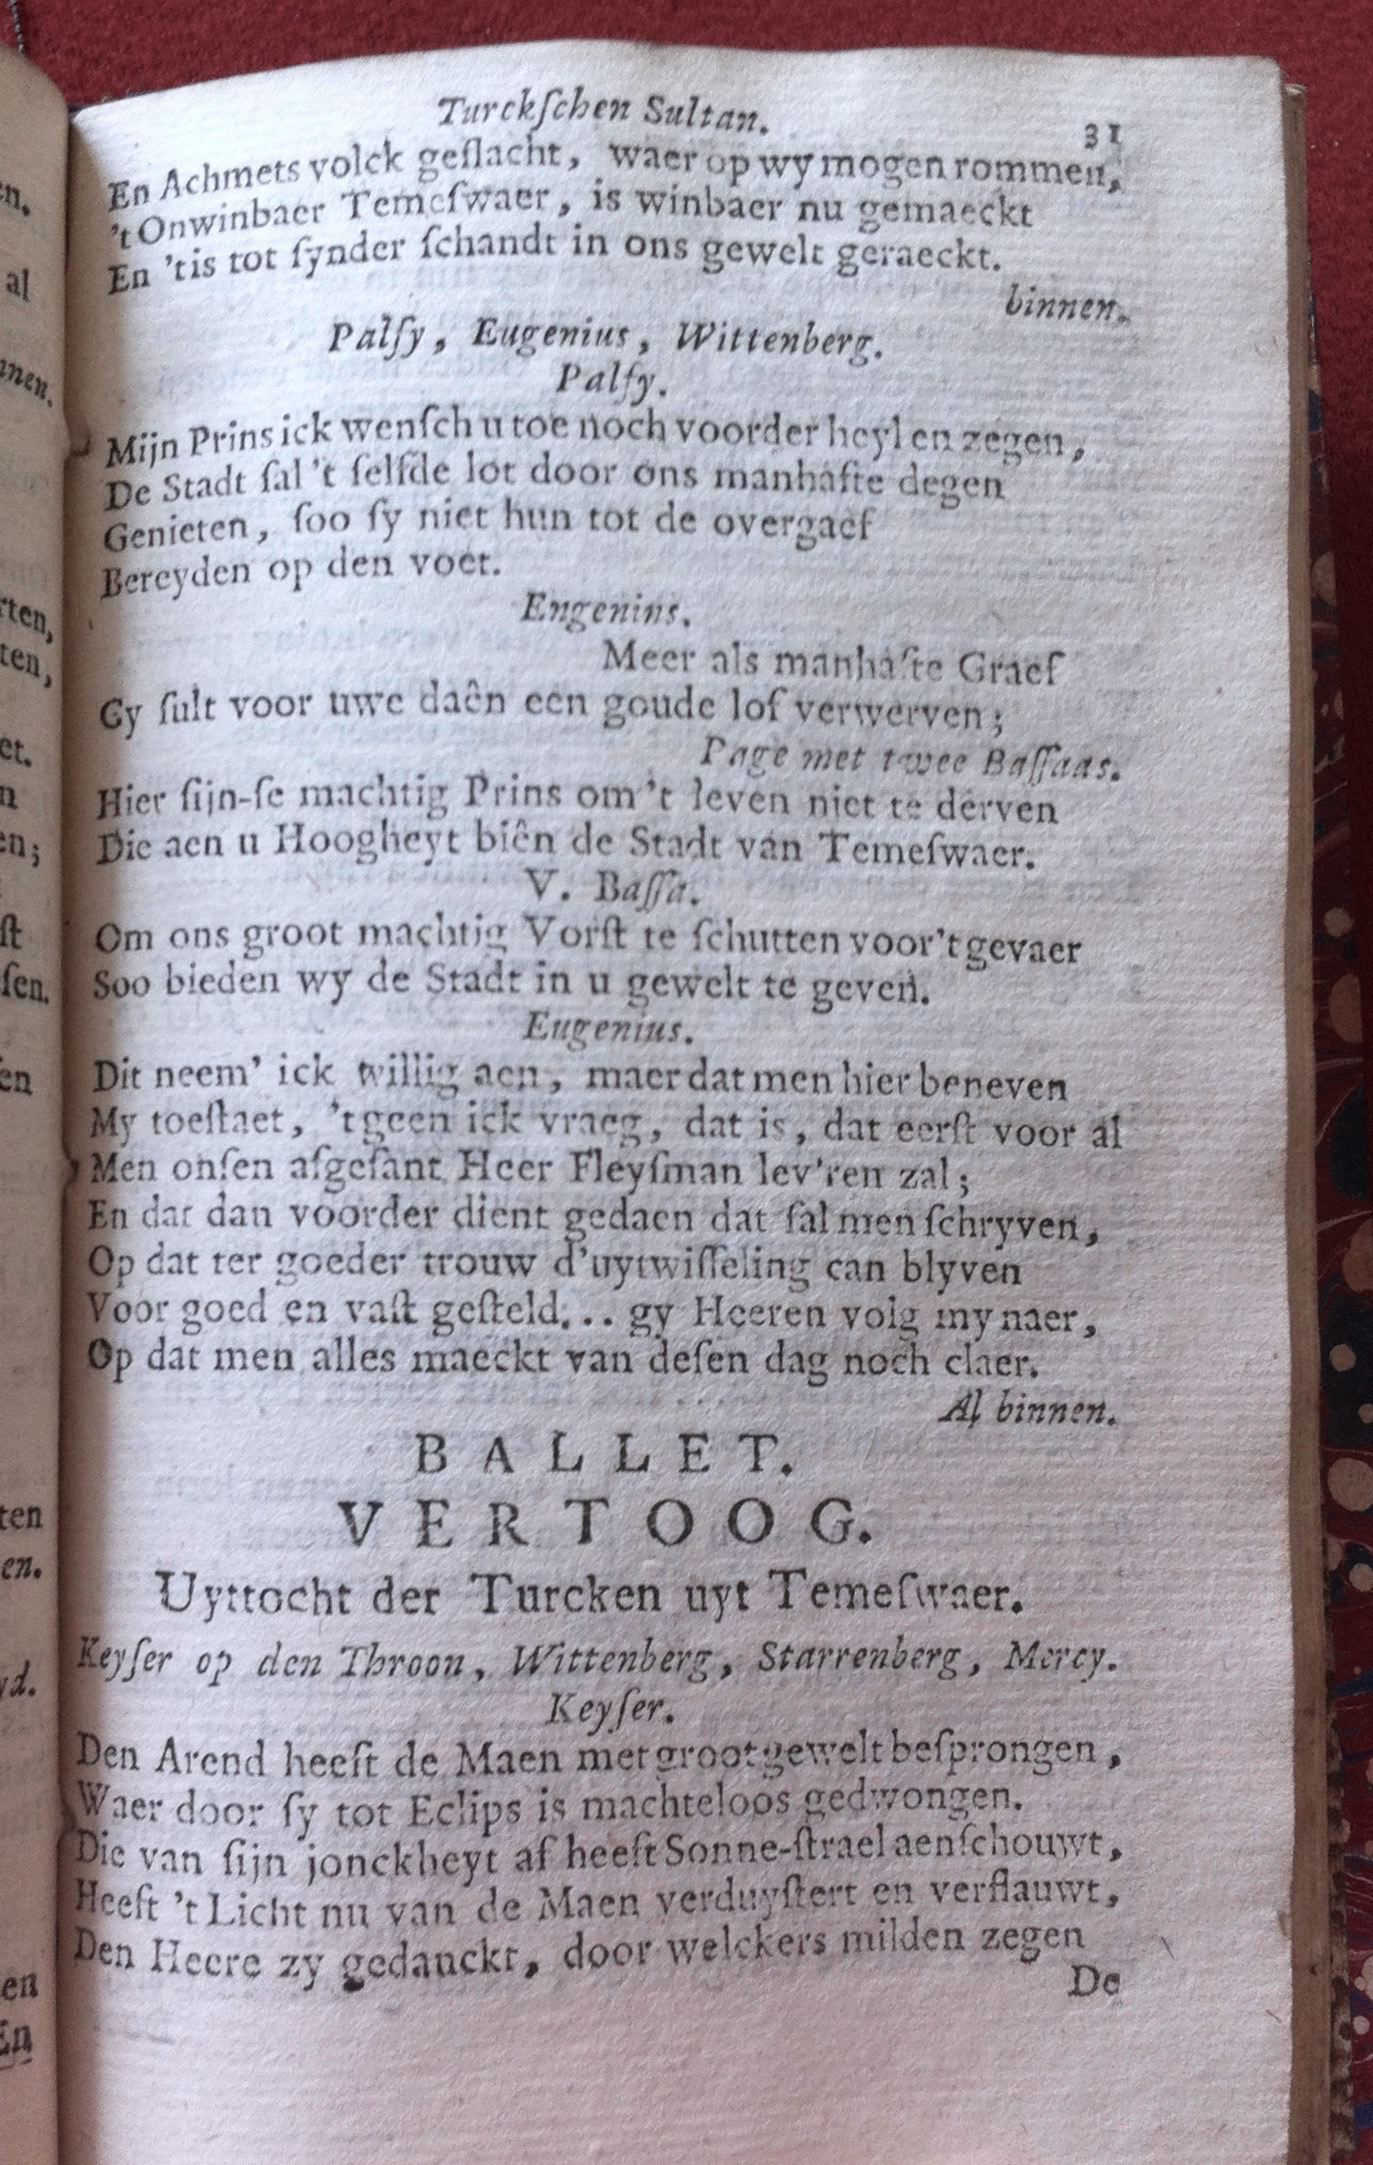 Turckſchen Sultan. 31
En Achmets volck geſlacht, waer op wy mogen rommen,
't Onwinbaer Temeſwaer, is winbaer nu gemaeckt
En 'tis tot ſynder ſchandt in ons gewelt geraeckt.
binnen.
Palſy, Eugenius, Wittenberg.
Palſy.
Mijn Prins ick wenſch u toe noch voorder heyl en zegen,
De Stadt ſal 't ſelfde lot door ons manhafte degen
Genieten, ſoo ſy niet hun tot de overgaef
Bereyden op den voet.
Eugenius.
Meer als manhafte Graef
Gy ſult voor uwe daên een goude lof verwerven;
Page met twee Baſſaas.
Hier ſijn-ſe machtig Prins om 't leven niet te derven
Die aen u Hoogheyt biên de Stadt van Temeſwaer.
V. Baſſa.
Om ons groot machtig Vorſt te ſchutten voor 't gevaer
Soo bieden wy de Stadt in u gewelt te geven.
Eugenius.
Dit neem' ick willig aen, maer dat men hier beneven
My toeſtaet, 't geen ick vraeg, dat is, dat eerſt voor al
Men onſen afgeſant Heer Fleyſman lev'ren zal;
En dat dan voorder dient gedaen dat ſal men ſchryven,
Op dat ter goeder trouw d'uytwiſſeling can blyven
Voor goed en vaſt geſteld... gy Heeren volg my naer,
Op dat men alles maeckt van deſen dag noch claer.
Al binnen.
BALLET.
VERTOOG.
Uyttocht der Turcken uyt Temeſwaer.
Keyſer op den Throon, Wittenberg, Starrenberg, Mercy.
Keyſer.
Den Arend heeft de Maen met groot gewelt beſprongen,
Waer door ſy tot Eclips is machteloos gedwongen.
Die van ſijn jonckheyt af heeft Sonne-ſtrael aenſchouwt,
Heeft 't Licht nu van de Maen verduyſtert en verflauwt,
Den Heere zy gedanckt, door welckers milden zegen
De